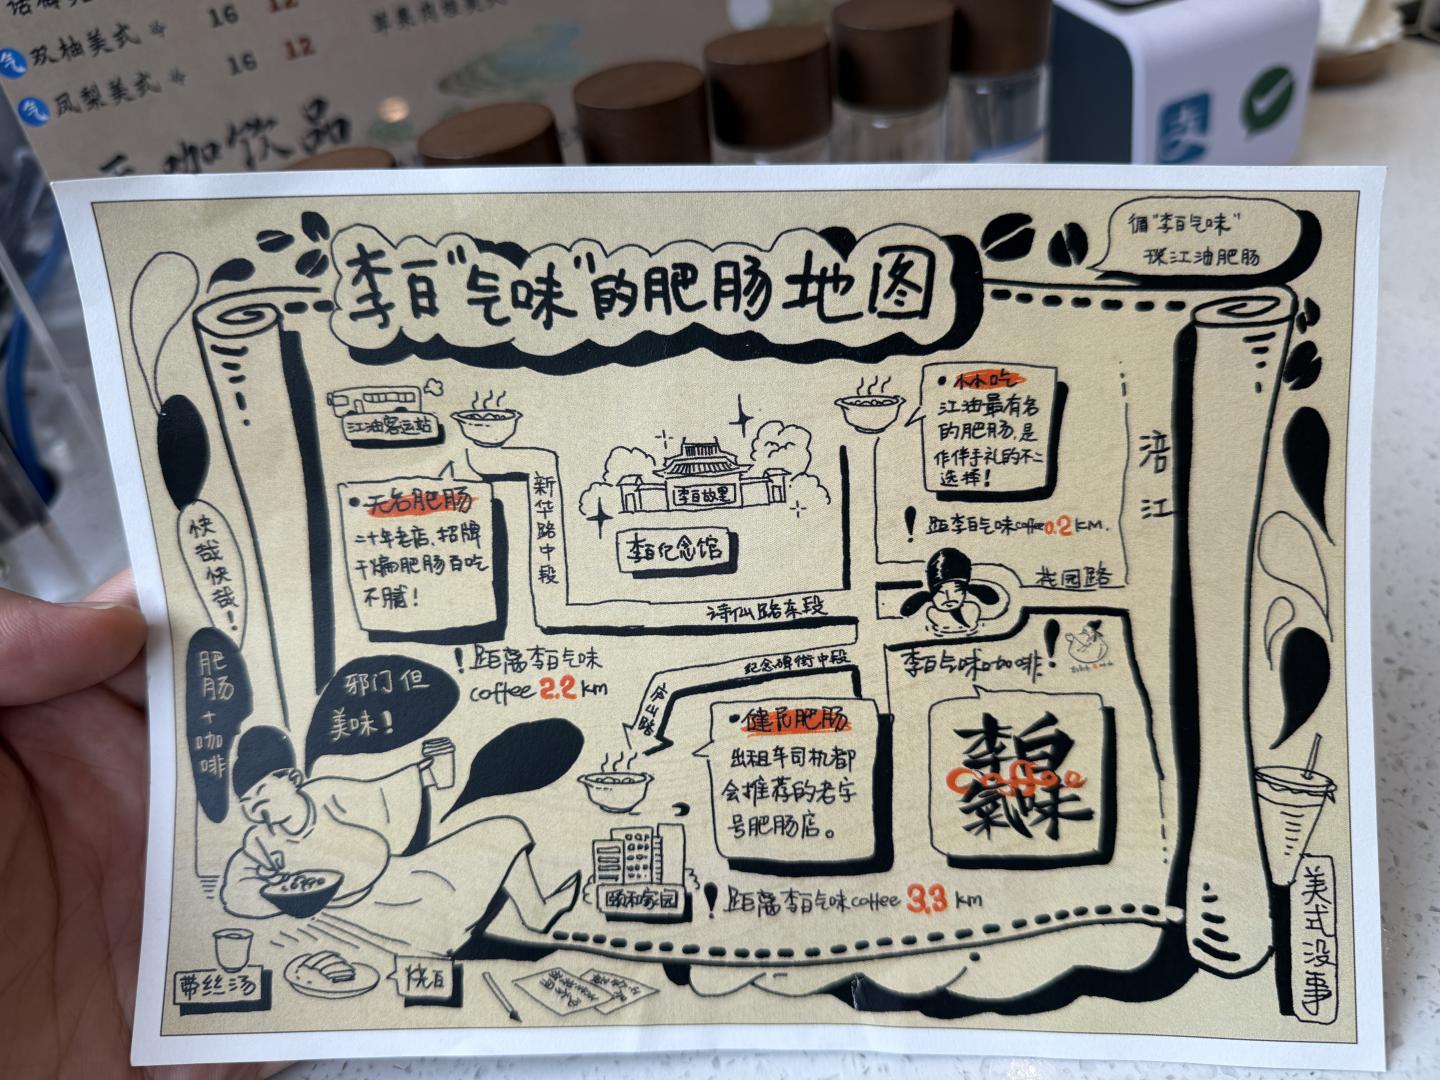 双柚美式 16
气 凤梨美式 16 12
咖饮品
李白"气味"的肥肠地图
循"李白气味"
探江油肥肠
江油客运站
无名肥肠
二十年老店,招牌
干煸肥肠百吃
不腻!
!距离李白气味
coffee 2.2 km
新华路中段
李白故里
李白纪念馆
诗仙路东段
江油最有名
的肥肠,是
作伴手礼的不二
选择!
!距李白气味coffee0.2KM.
涪江
李白气味咖啡!
李白
coffee
氣味
纪念碑街中段
健民肥肠
出租车司机都
会推荐的老字
号肥肠店。
颐和家园
!距离李白气味coffee 3.3 km
快哉快哉!
肥肠+咖啡
邪门但
美味!
带丝汤
美式没事